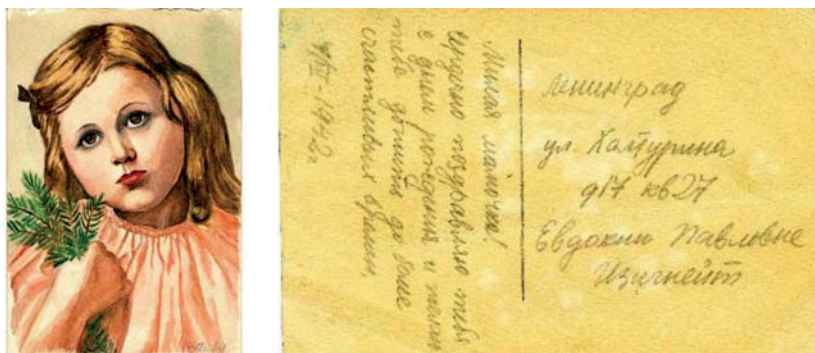 Милая мамочка!
Сердечно поздравляю тебя
с днем рождения и желаю
тебе дожить до более
счастливых времен.
4/III-1942г
Ленинград
ул. Халтурина
д17 кв27
Евдокии Павловне